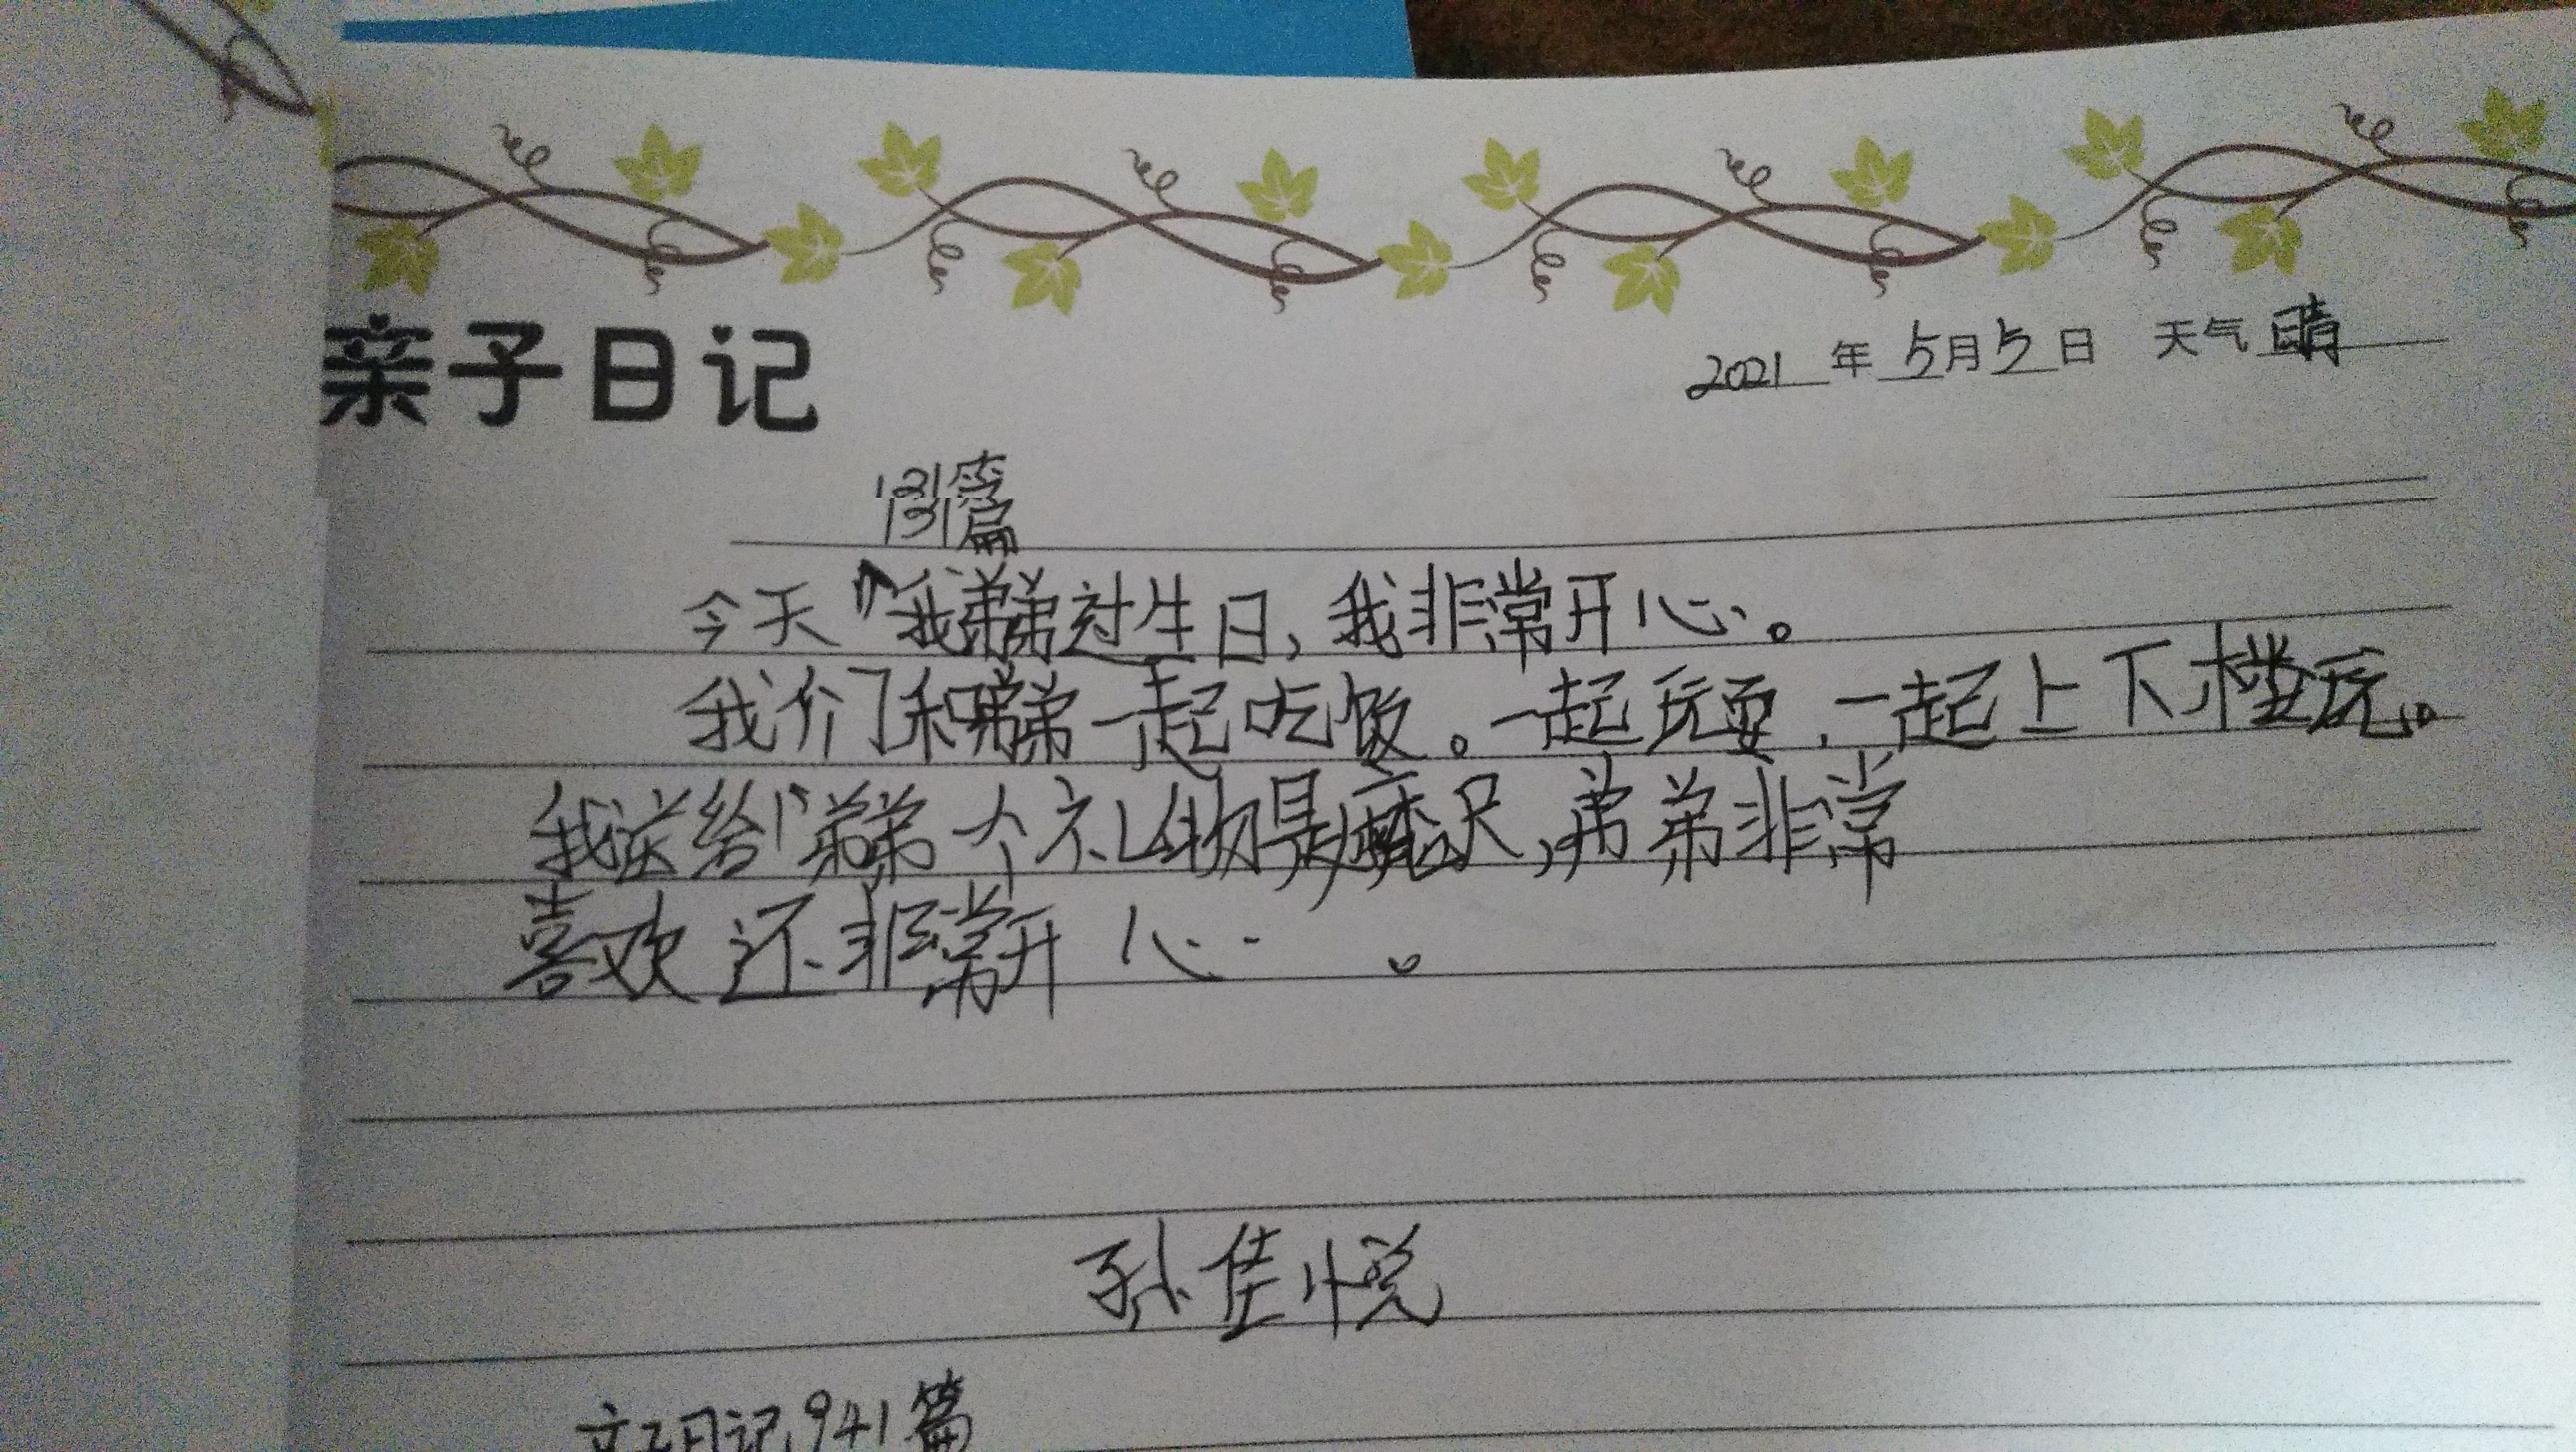 亲子日记
2021年5月5日 天气晴
131篇
今天我弟弟过生日,我非常开心。
我们和弟弟一起吃饭。一起玩耍,一起上下楼玩。
我送给弟弟个礼物是磨尺,弟弟非常
喜欢还非常开心。
孙佳悦
日记941篇